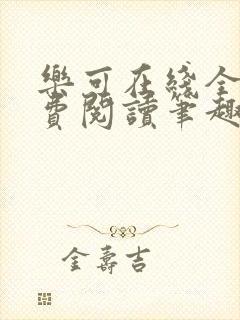 樂可在綫全
費閱讀筆趣
金壽吉